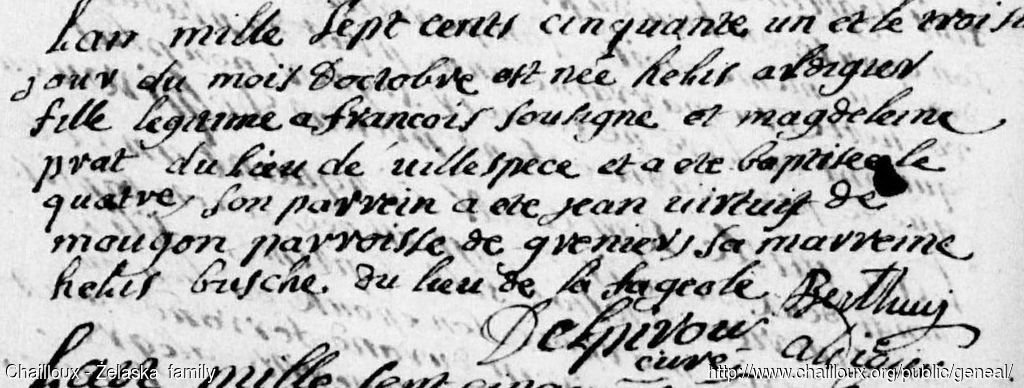 Lan mille Sept cents cinquante un et le trois
jour du mois Doctobre est née helis ardigier
fille legitime a francois sousigne et magdeleine
prat du lieu de villespece et a ete baptisee le
quatre, son parrein a ete jean
de
mougon parroisse de greniers, sa marreine
helis busche. du lieu de la fageole
Delpirou
curé
Lan mille Sept
Chailloux - Zelaska family
http://www.chailloux.org/public/geneal/